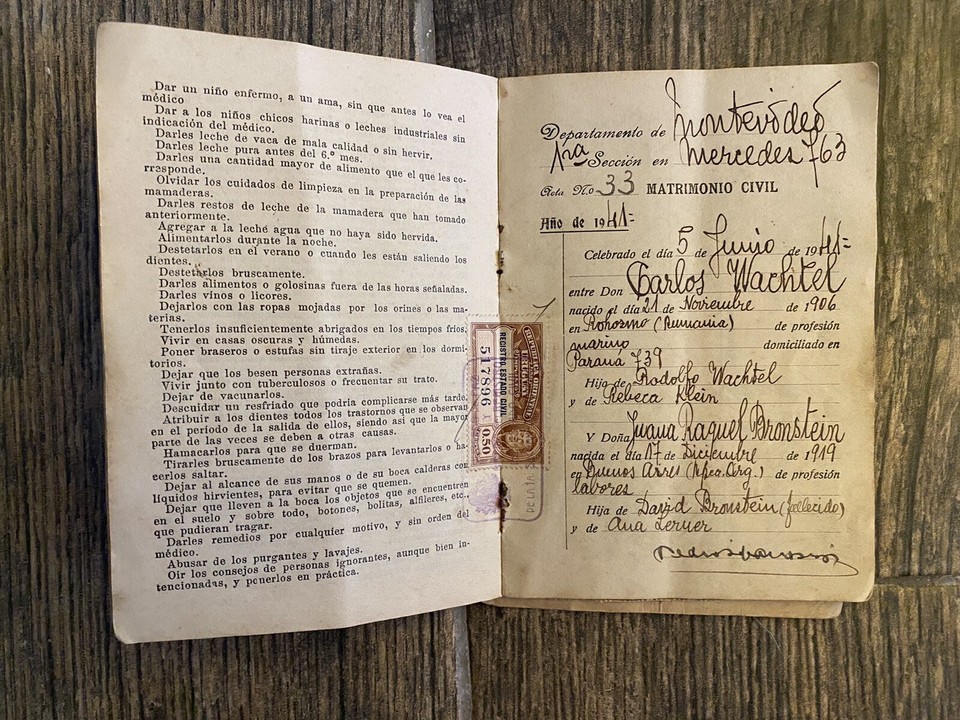 Dar un niño enfermo, a un ama, sin que antes lo vea el
médico
Dar a los niños chicos harinas o leches industriales sin
indicación del médico.
Darles leche de vaca de mala calidad o sin hervir.
Darles leche pura antes del 6.º mes.
Darles una cantidad mayor de alimento que el que les co-
rresponde.
Olvidar los cuidados de limpieza en la preparación de las
mamaderas.
Darles restos de leche de la mamadera que han tomado
anteriormente.
Agregar a la leche agua que no haya sido hervida.
Alimentarlos durante la noche.
Destetarlos en el verano o cuando les están saliendo los
dientes.
Destetarlos bruscamente.
Darles alimentos o golosinas fuera de las horas señaladas.
Darles vinos o licores.
Dejarlos con las ropas mojadas por los orines o las ma-
terias.
Tenerlos insuficientemente abrigados en los tiempos fríos.
Vivir en casas oscuras y húmedas.
Poner braseros o estufas sin tiraje exterior en los dormi-
torios.
Dejar que los besen personas extrañas.
Vivir junto con tuberculosos o frecuentar su trato.
Dejar de vacunarlos.
Descuidar un resfriado que podría complicarse más tarde.
Atribuir a los dientes todos los trastornos que se observan
en el período de la salida de ellos, siendo así que la mayor
parte de las veces se deben a otras causas.
Hamacarlos para que se duerman.
Tirarles bruscamente de los brazos para levantarlos o ha-
cerlos saltar.
Dejar al alcance de sus manos o de su boca calderas con
líquidos hirvientes, para evitar que se quemen.
Dejar que lleven a la boca los objetos que se encuentren
en el suelo y sobre todo, botones, bolitas, alfileres, etc.,
que pudieran tragar.
Darles remedios por cualquier motivo, y sin orden del
médico.
Abusar de los purgantes y lavajes.
Oir los consejos de personas ignorantes, aunque bien in-
tencionadas, y ponerlos en práctica.
REPUBLICA ORIENTAL
URUGUAY
REGISTRO ESTADO CIVIL
517896
0.50
DE LA 1A
Departamento de Montevideo
1ra Sección en Mercedes 763
Acta N.o 33 MATRIMONIO CIVIL
Año de 1941=
Celebrado el día 5 de Junio de 1941=
entre Don Carlos Wachtel
nacido el día 21 de Noviembre de 1906
en (Rumania) de profesión
marino domiciliado en
Paraná 739
Hijo de Rodolfo Wachtel
y de Rebeca Klein
Y Doña Juana Raquel Bronstein
nacida el día 17 de Diciembre de 1919
en Buenos Aires (Rpca. Arg.) de profesión
labores
Hija de David Bronstein (fallecido)
y de Ana Lerner